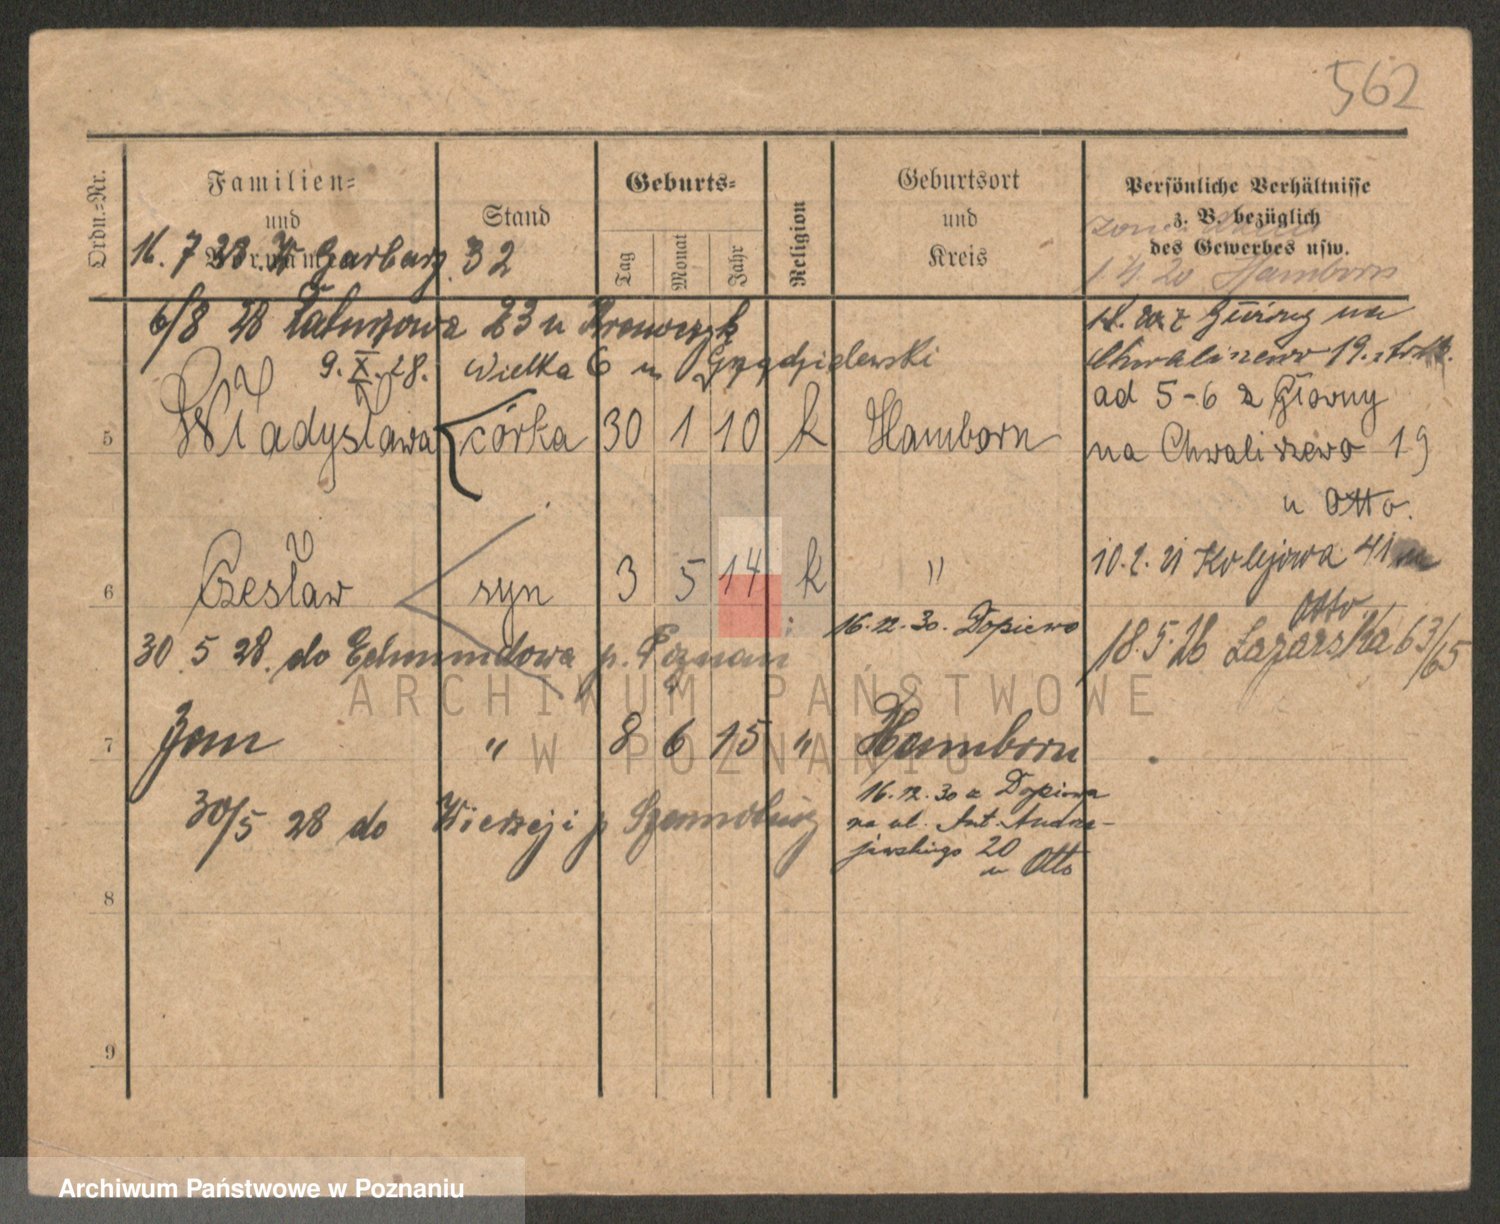 562
Ordn.-Nr.
Familien-
und
Stand
Geburts-
Tag
Monat
Jahr
Religion
Geburtsort
und
Kreis
Persönliche Verhältnisse
z. B. bezüglich
des Gewerbes usw.
16. 7 28. W Garbary 32
1 4 20 Hamborn
6/8 28 23 u
9. X. 28. Wielka 6 u
Górny na
Chwaliszewo 19.
5 Władysława córka 30 1 10 k Hamborn
ad 5-6 z Górny
na Chwaliszewo 19
u Otto.
6 Czesław syn 3 5 14 k "
Kolejowa 41
Otto
16.12.30. Dopiewo
18.5.26 Łazarska 63/65
30 5 28. do Edmundowa p. Poznań
7 Jan " 8 6 15 " Hamborn
30/5 28 do Wierzeji p
16.12.30 z Dopiewa
na ul. Ant. Andrze-
jewskiego 20
u Otto
8
9
ARCHIWUM PAŃSTWOWE
W POZNANIU
Archiwum Państwowe w Poznaniu